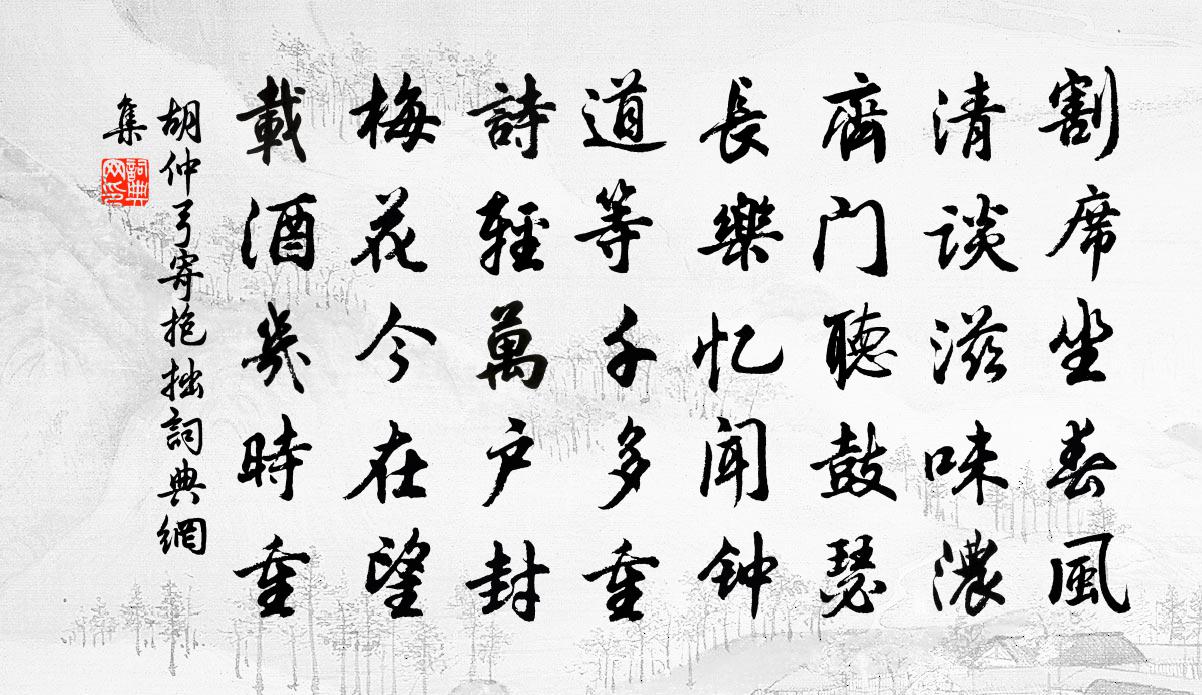 割席坐春风
清谈滋味濃
齊门聽鼓瑟
長樂忆闻钟
道等千多重
詩輕萬户封
梅花今在望
載酒幾時重
胡仲弓寄抱拙詞典網
集
詞典網印